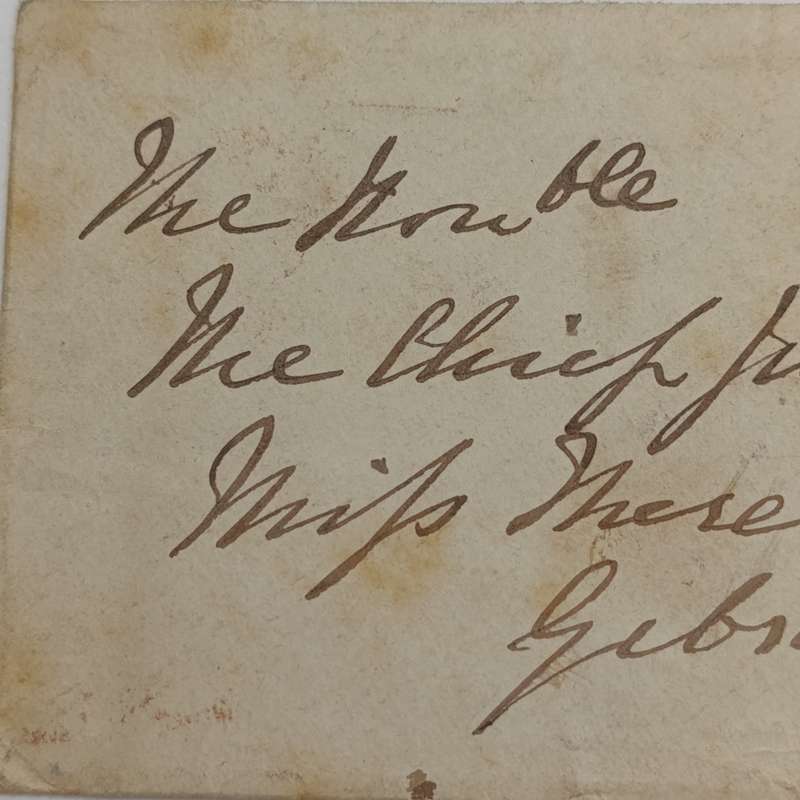 The Hon^ble
The Chief Ju
Miss There
Gibr